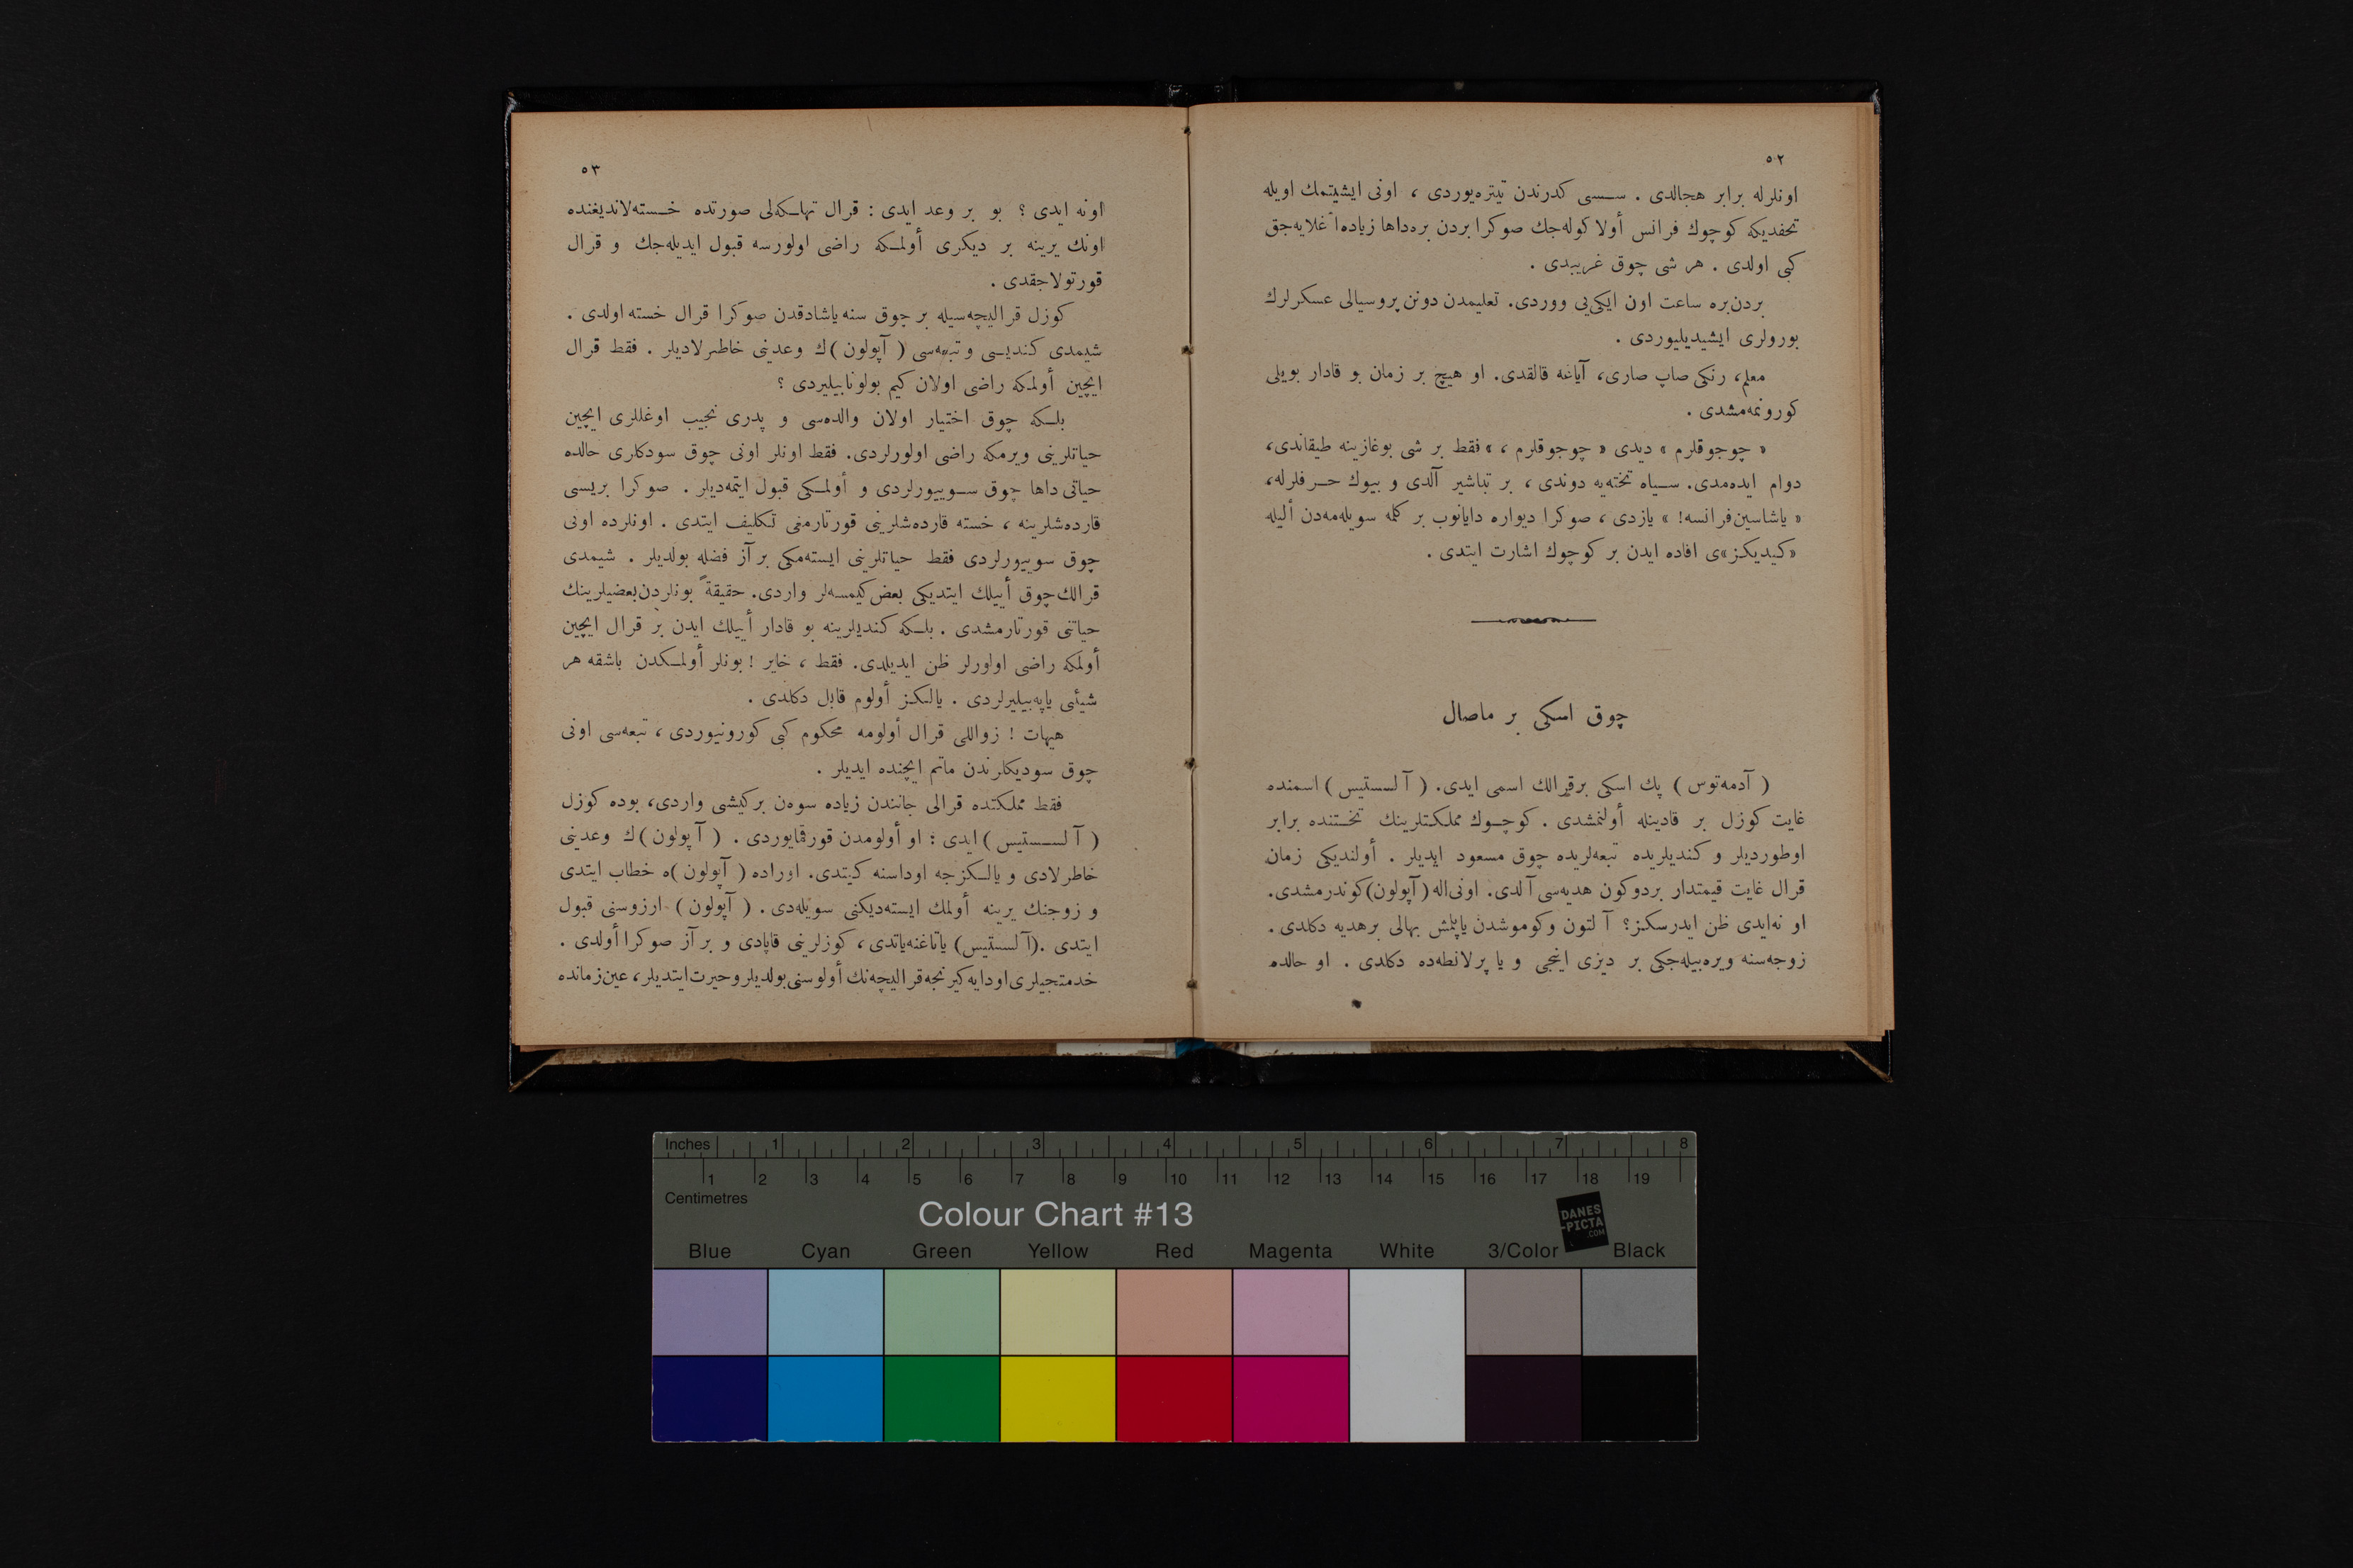 ٥٢
اونلرله برابر هجالدی . سسی كدرندن تیتره‌یوردی ، اونی ایشیتمك اویله
تحفدیكه كوچوك فرانس أولا كوله‌جك صوكرا بردن بره‌داها زیاده آغلایه‌جق
كبی اولدی . هر شی چوق غریبدی .
بردن‌بره ساعت اون ایكی‌یی ووردی. تعلیمدن دونن پروسیالی عسكرلرك
بورولری ایشیدیلیوردی .
معلم، رنكی صاپ صاری، آیاغه قالقدی. او هیچ بر زمان بو قادار بویلی
كورونمه‌مشدی .
« چوجوقلرم » دیدی « چوجوقلرم ، » فقط بر شی بوغازینه طیقاندی،
دوام ایده‌مدی. سیاه تخته‌یه دوندی ، بر تباشیر آلدی و بیوك حرفلرله،
« یاشاسین فرانسه! » یازدی ، صوكرا دیواره دایانوب بر كلمه سویله‌مه‌دن ألیله
«كیدیكز»ی افاده ایدن بر كوچوك اشارت ایتدی .
چوق اسكی بر ماصال
( آدمه‌توس ) پك اسكی برقرالك اسمی ایدی. ( آلسستیس ) اسمنده
غایت كوزل بر قادینله أولنمشدی . كوچوك مملكتلرینك تختنده برابر
اوطوردیلر و كندیلریده تبعه‌لریده چوق مسعود ایدیلر . أولندیكی زمان
قرال غایت قیمتدار بردوكون هدیه‌سی آلدی. اونی‌اله (آپولون) كوندرمشدی.
او نه‌ایدی ظن ایدرسكز؟ آلتون و كوموشدن یاپلمش بهالی برهدیه دكلدی .
زوجه‌سنه ویره‌بیله‌جكی بر دیزی اینجی و یا پرلانطه‌ده دكلدی . او حالده
٥٣
اونه ایدی ؟ بو بر وعد ایدی : قرال تهلكه‌لی صورتده خسته‌لاندیغنده
اونك یرینه بر دیكری أولمكه راضی اولورسه قبول ایدیله‌جك و قرال
قورتولاجقدی .
كوزل قرالیچه‌سیله بر چوق سنه یاشادقدن صوكرا قرال خسته اولدی .
شیمدی كندیسی و تبعه‌سی ( آپولون )ك وعدینی خاطرلادیلر . فقط قرال
ایچین أولمكه راضی اولان كیم بولونابیلیردی ؟
بلكه چوق اختیار اولان والده‌سی و پدری نجیب اوغللری ایچین
حیاتلرینی ویرمكه راضی اولورلردی. فقط اونلر اونی چوق سودكلری حالده
حیاتی داها چوق سوییورلردی و أولمكی قبول ایتمه‌دیلر . صوكرا بریسی
قارده‌شلرینه ، خسته قارده‌شلرینی قورتارمغی تكلیف ایتدی . اونلرده اونی
چوق سوییورلردی فقط حیاتلرینی ایسته‌مكی بر آز فضله بولدیلر . شیمدی
قرالك چوق أییلك ایتدیكی بعض كیمسه‌لر واردی. حقیقةً بونلردن بعضیلرینك
حیاتنی قورتارمشدی . بلكه كندیلرینه بو قادار أییلك ایدن بر قرال ایچین
أولمكه راضی اولورلر ظن ایدیلدی. فقط ، خایر ! بونلر أولمكدن باشقه هر
شیئی یاپه‌بیلیرلردی . یالكز أولوم قابل دكلدی .
هیهات ! زواللی قرال أولومه محكوم كبی كورونیوردی ، تبعه‌سی اونی
چوق سودیكلرندن ماتم ایچنده ایدیلر .
فقط مملكتده قرالی جانندن زیاده سوه‌ن بركیشی واردی، بوده كوزل
( آلسستیس ) ایدی : او أولومدن قورقمایوردی . ( آپولون )ك وعدینی
خاطرلادی و یالكزجه اوداسنه كیتدی. اوراده ( آپولون )ه خطاب ایتدی
و زوجنك یرینه أولمك ایسته‌دیكنی سویله‌دی . ( آپولون ) ارزوسنی قبول
ایتدی .(آلسستیس) یاتاغنه‌یاتدی ، كوزلرینی قاپادی و بر آز صوكرا أولدی .
خدمتجیلری اودایه كیرنجه قرالیچه‌نك أولوسنی بولدیلر و حیرت ایتدیلر، عین زمانده
Inches 1 2 3 4 5 6 7 8
1 2 3 4 5 6 7 8 9 10 11 12 13 14 15 16 17 18 19
Centimetres
Colour Chart #13
DANES
-PICTA
.COM
Blue Cyan Green Yellow Red Magenta White 3/Color Black